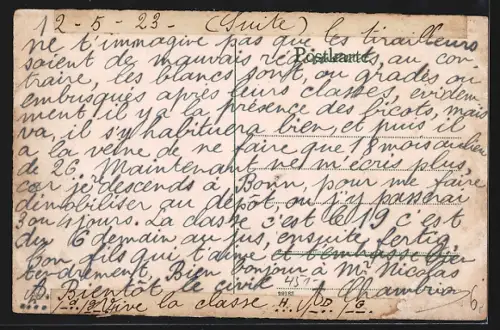 12-5-23- (Suite) ils
ne t'immagive pas que les tirailleurs
soient de mauvais régiments, au con
traire, les blancs sont, ou gradés ou
embusqués après leurs classes, évidem
ment il y a la présence des bicots, mais
va, il s'y habituera bien, et puis il
a la veine de ne faire que 18 mois au lieu
de 26. Maintenant ne m'écris plus,
car je descends à Bonn, pour me faire
démobiliser au dépôt, où j'y passerai
3 ou 4 jours. La classe c'est le 19 c'est
du 6 demain au jus, ensuite fertig.
Ton fils qui t'aime et t'embrasse
tendrement. Bien bonjour à Mr Nicolas
Bientôt le civil
Vive la classe
Postkarte